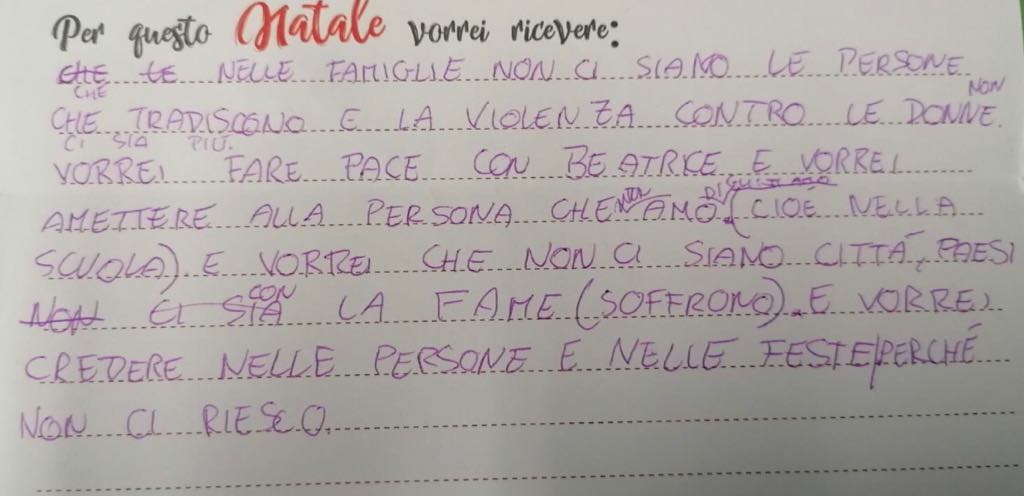 Per questo Natale vorrei ricevere:
CHE LE NELLE FAMIGLIE NON CI SIANO LE PERSONE
CHE
NON
CHE TRADISCONO E LA VIOLENZA CONTRO LE DONNE.
CI SIA PIÙ.
VORREI FARE PACE CON BEATRICE E VORREI
AMETTERE ALLA PERSONA CHE NON AMO DI (CIOE NELLA
SCUOLA). E VORREI CHE NON CI SIANO CITTÀ, PAESI
CON
NON CI STA LA FAME (SOFFRONO). E VORREI
CREDERE NELLE PERSONE E NELLE FESTE/PERCHÉ
NON CI RIESCO.